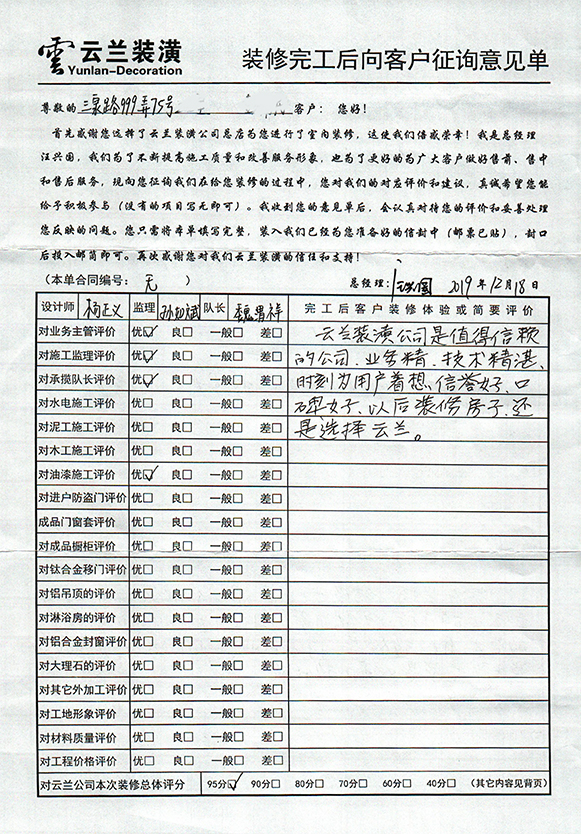 雲 云兰装潢
Yunlan-Decoration
装修完工后向客户征询意见单
尊敬的 三泉路999弄75号 客户：您好！
首先感谢您选择了云兰装潢公司总店为您进行了室内装修，这使我们倍感荣幸！我是总经理
汪兴国，我们为了不断提高施工质量和改善服务形象，也为了更好的为广大客户做好售前、售中
和售后服务，现向您征询我们在给您装修的过程中，您对我们的对应评价和建议，真诚希望您能
给予积极参与（没有的项目写无即可）。我收到您的意见单后，会认真对待您的评价和妥善处理
您反映的问题。您只需将本单填写完整，装入我们已经为您准备好的信封中（邮票已贴），封口
后投入邮筒即可。再次感谢您对我们云兰装潢的信任和支持！
（本单合同编号：无 ） 总经理：汪兴国 2019年12月18日
设计师 杨正义 监理 孙 斌 队长 魏昌祥 完工后客户装修体验或简要评价
对业务主管评价 优☑ 良□ 一般□ 差□ 云兰装潢公司是值得信赖
对施工监理评价 优☑ 良□ 一般□ 差□ 的公司.业务精.技术精湛.
对承揽队长评价 优☑ 良□ 一般□ 差□ 时刻为用户着想.信誉好.口
对水电施工评价 优□ 良□ 一般□ 差□ 碑好.以后装修房子.还
对泥工施工评价 优□ 良□ 一般□ 差□ 是选择云兰。
对木工施工评价 优□ 良□ 一般□ 差□
对油漆施工评价 优☑ 良□ 一般□ 差□
对进户防盗门评价 优□ 良□ 一般□ 差□
成品门窗套评价 优□ 良□ 一般□ 差□
对成品橱柜评价 优□ 良□ 一般□ 差□
对钛合金移门评价 优□ 良□ 一般□ 差□
对铝吊顶的评价 优□ 良□ 一般□ 差□
对淋浴房的评价 优□ 良□ 一般□ 差□
对铝合金封窗评价 优□ 良□ 一般□ 差□
对大理石的评价 优□ 良□ 一般□ 差□
对其它外加工评价 优□ 良□ 一般□ 差□
对工地形象评价 优□ 良□ 一般□ 差□
对材料质量评价 优□ 良□ 一般□ 差□
对工程价格评价 优□ 良□ 一般□ 差□
对云兰公司本次装修总体评分 95分☑ 90分□ 80分□ 70分□ 60分□ 40分□ （其它内容见背页）